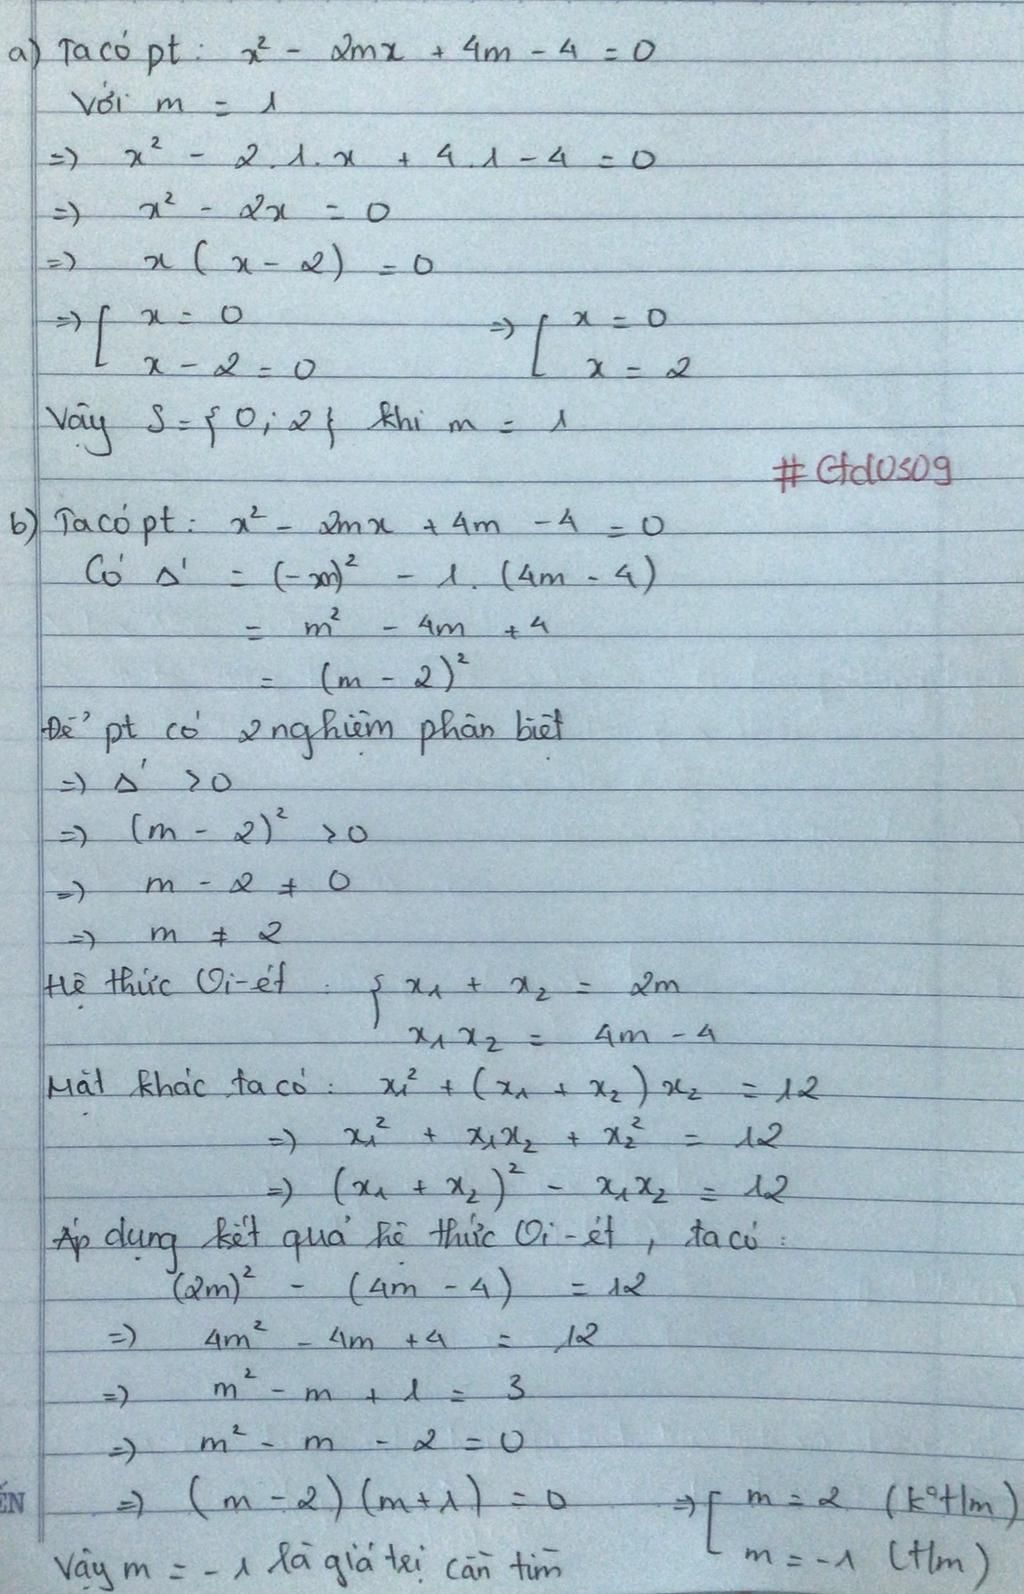 a) Ta có pt: x² - 2mx + 4m - 4 = 0
Với m = 1
=> x² - 2.1.x + 4.1 - 4 = 0
=> x² - 2x = 0
=> x(x - 2) = 0
=> [ x = 0 => [ x = 0
x - 2 = 0 x = 2
Vậy S = {0; 2} khi m = 1
#Gtd0309
b) Ta có pt: x² - 2mx + 4m - 4 = 0
Có Δ' = (-m)² - 1.(4m - 4)
= m² - 4m + 4
= (m - 2)²
Để pt có 2 nghiệm phân biệt
=> Δ' > 0
=> (m - 2)² > 0
=> m - 2 ≠ 0
=> m ≠ 2
Hệ thức Vi-ét: { x₁ + x₂ = 2m
x₁x₂ = 4m - 4
Mặt khác ta có: x₁² + (x₁ + x₂)x₂ = 12
=> x₁² + x₁x₂ + x₂² = 12
=> (x₁ + x₂)² - x₁x₂ = 12
Áp dụng kết quả hệ thức Vi-ét, ta có:
(2m)² - (4m - 4) = 12
=> 4m² - 4m + 4 = 12
=> m² - m + 1 = 3
=> m² - m - 2 = 0
=> (m - 2)(m + 1) = 0 => [ m = 2 (kº t/m)
m = -1 (t/m)
Vậy m = -1 là giá trị cần tìm